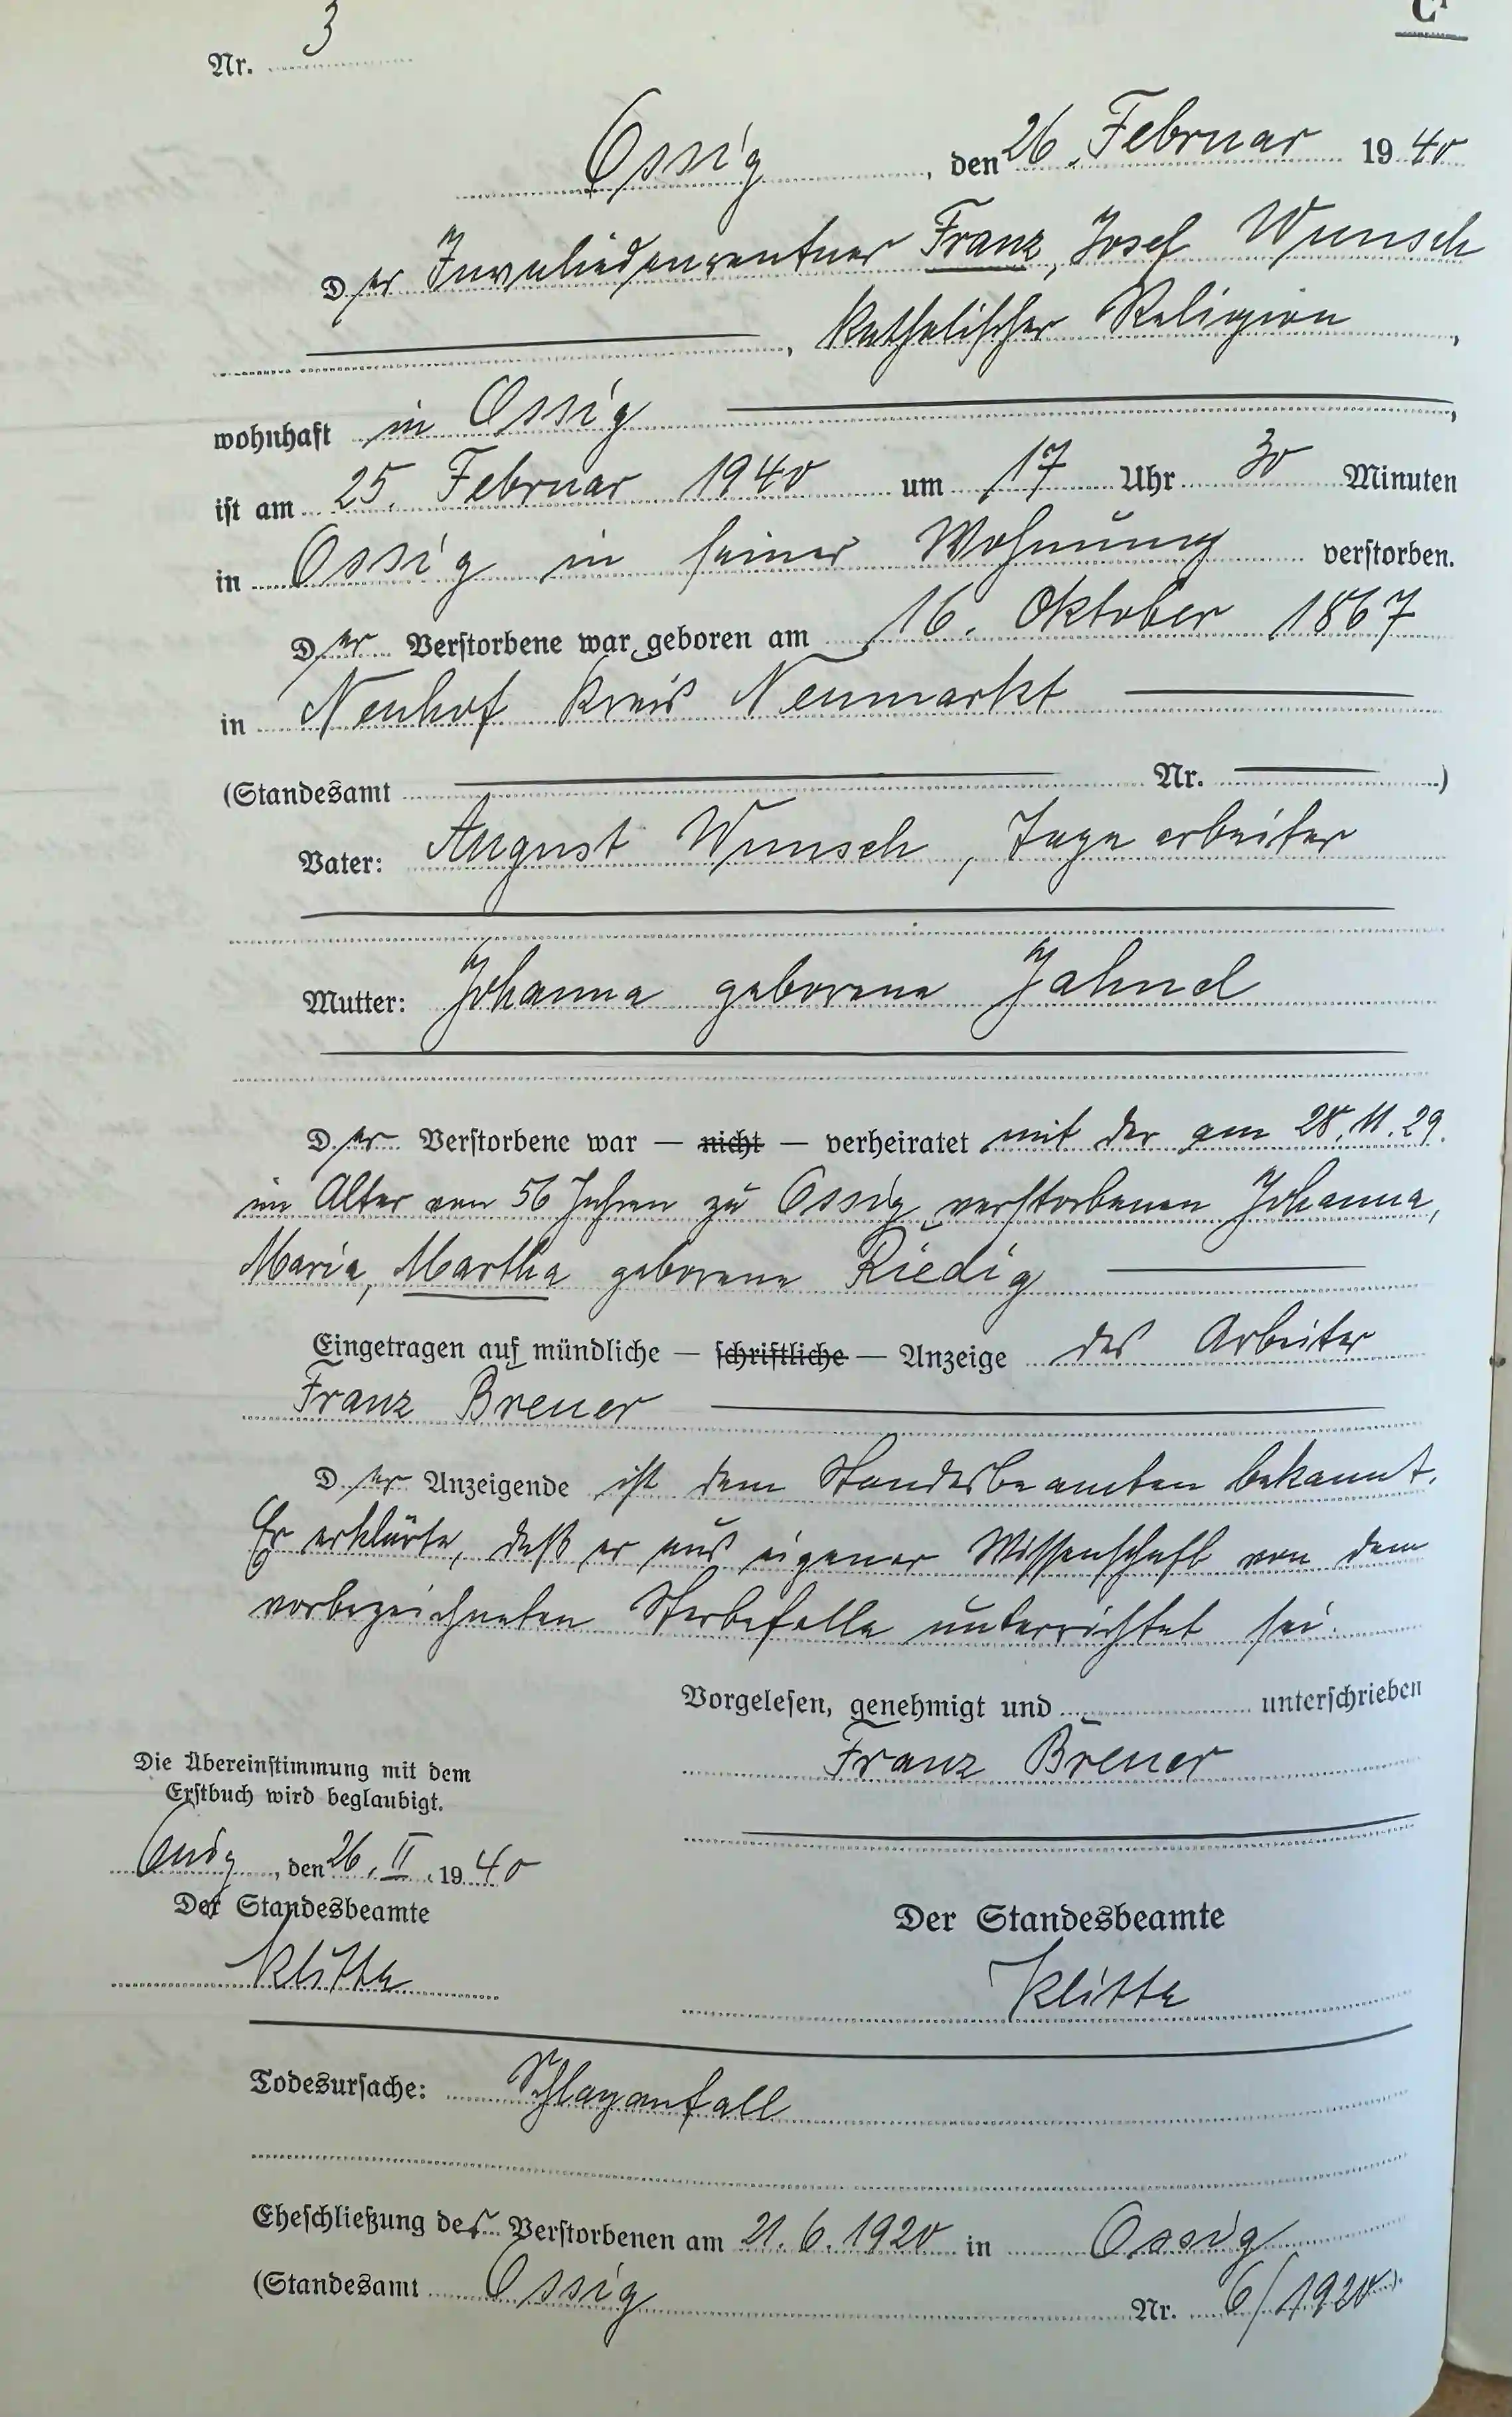 C¹
Nr. 3
Ossig, den 26. Februar 1940
Der Invalidenrentner Franz, Josef Wunsch
, katholischer Religion,
wohnhaft in Ossig,
ist am 25. Februar 1940 um 17 Uhr 30 Minuten
in Ossig in seiner Wohnung verstorben.
Der Verstorbene war geboren am 16. Oktober 1867
in Neuhof Kreis Neumarkt
(Standesamt Nr. )
Vater: August Wunsch, Tagearbeiter
Mutter: Johanna geborene
Der Verstorbene war — nicht — verheiratet mit der am 28.11.29.
im Alter von 56 Jahren zu Ossig verstorbenen Johanna,
Maria, Martha geborene Riedig
Eingetragen auf mündliche — schriftliche — Anzeige des Arbeiter
Franz Breuer
Der Anzeigende ist dem Standesbeamten bekannt.
Er erklärte, daß er aus eigener Wissenschaft von dem
vorbezeichneten Sterbefalle unterrichtet sei.
Vorgelesen, genehmigt und unterschrieben
Franz Breuer
Die Übereinstimmung mit dem
Erstbuch wird beglaubigt.
Ossig, den 26. II. 1940
Der Standesbeamte
Klitte
Der Standesbeamte
Klitte
Todesursache: Schlaganfall
Eheschließung des Verstorbenen am 21.6.1920 in Ossig
(Standesamt Ossig Nr. 6/1920).